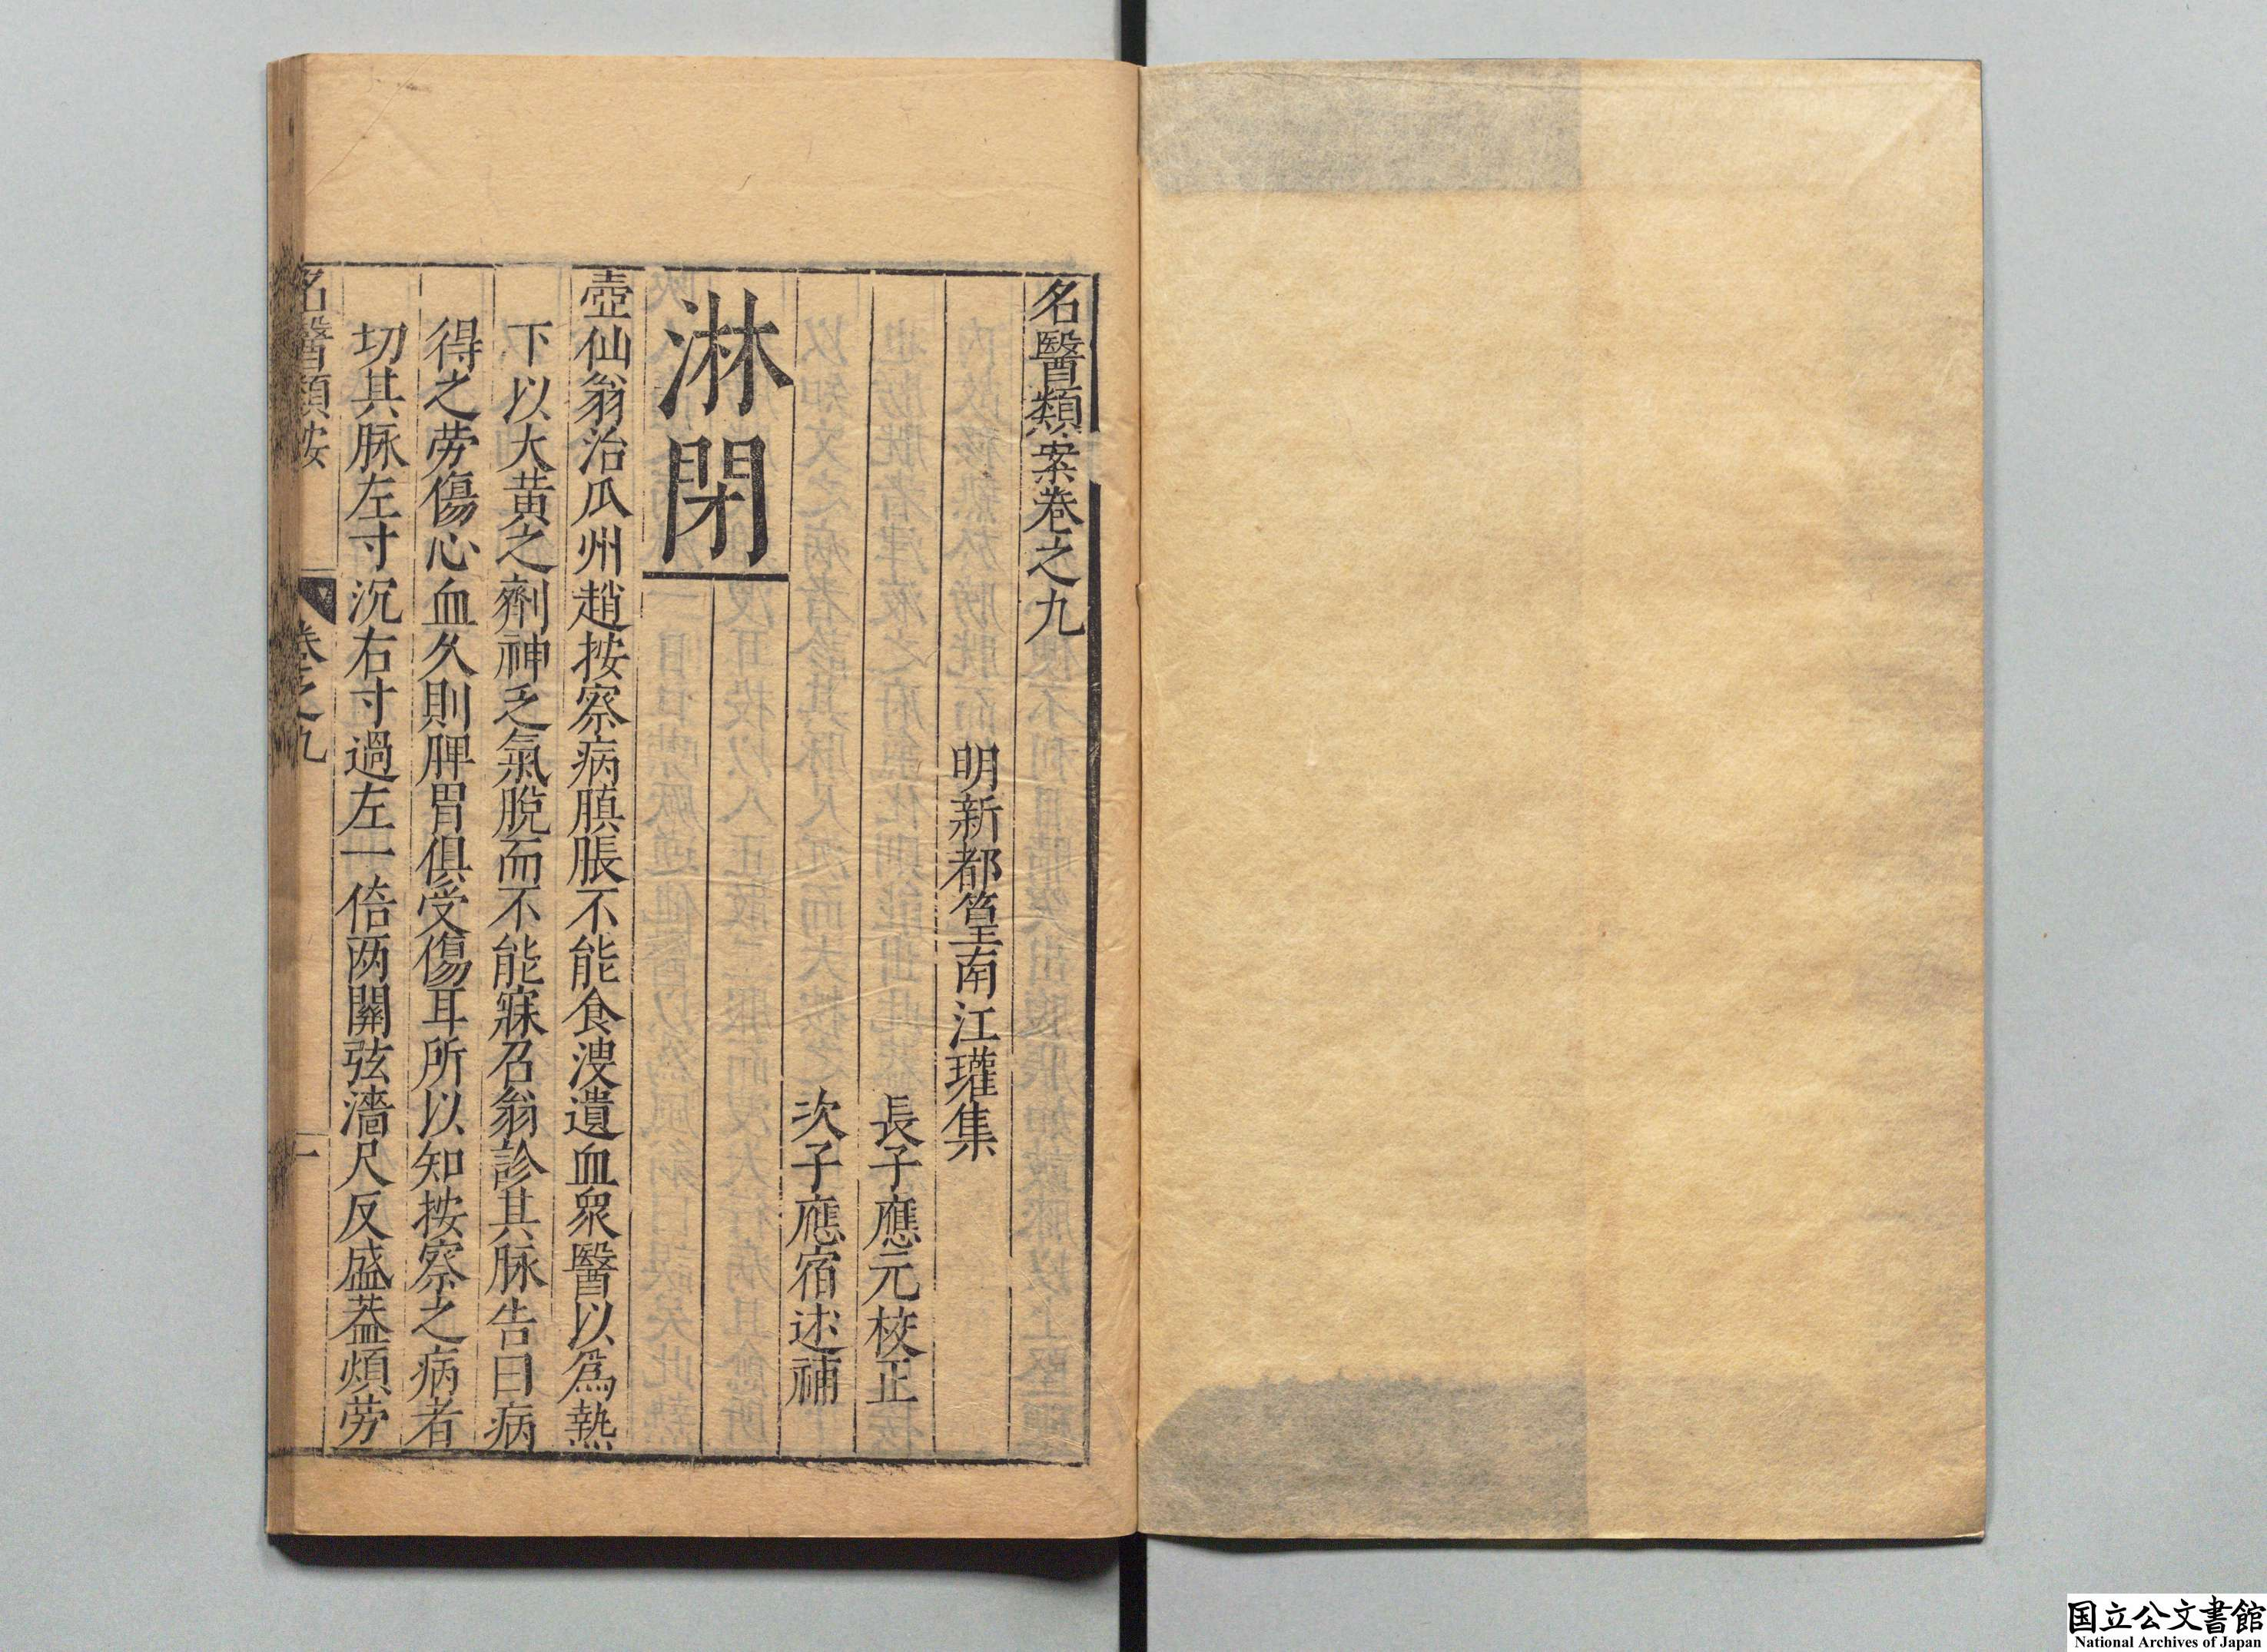 名醫類案卷之九
明新都篁南江瓘集
長子應元校正
次子應宿述補
淋閉
壺仙翁治瓜州趙按察病䐜脹不能食溲遺血衆醫以爲熱
下以大黃之劑神乏氣脫而不能寐召翁診其脉告曰病
得之勞傷心血久則脾胃俱受傷耳所以知按察之病者
切其脉左寸沉右寸過左一倍两關弦濇尺反盛葢煩勞
名醫類按
卷之九
一
国立公文書館
National Archives of Japan